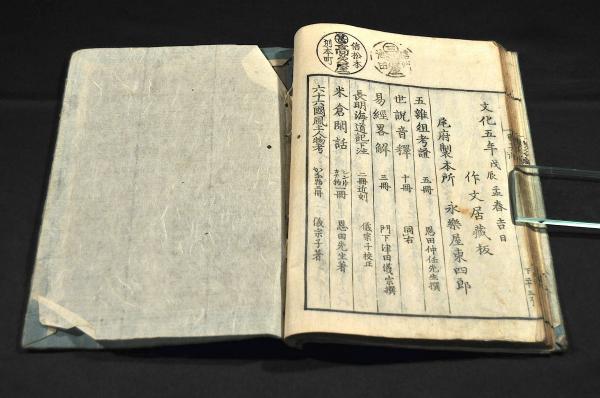 文化五年戊辰孟春吉日
作文居藏板
尾府製本所 永樂屋東四郎
五雜俎考證 五冊 恩田仲任先生撰
世説音釋 十冊 同右
易經畧解 三冊 門下津田儀宗撰
長明海道記下注 二冊近刻 儀宗子校正
米倉閒話 一冊 恩田先生著
六十六國風土人物考 二冊 儀宗子著
信松本
別本町